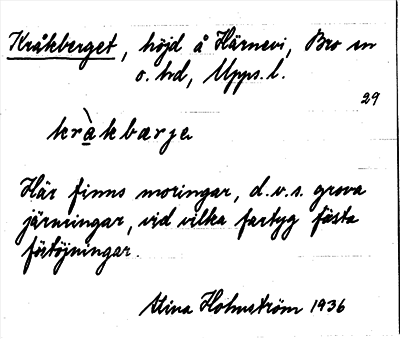 Kråkberget, höjd å Härnevi, Bro sn
o. hd, Upps. l.
29
kràkbærje
Här finns moringar, d.v.s. grova
järnringar, vid vilka fartyg fästa
förtöjningar.
Stina Holmström 1936